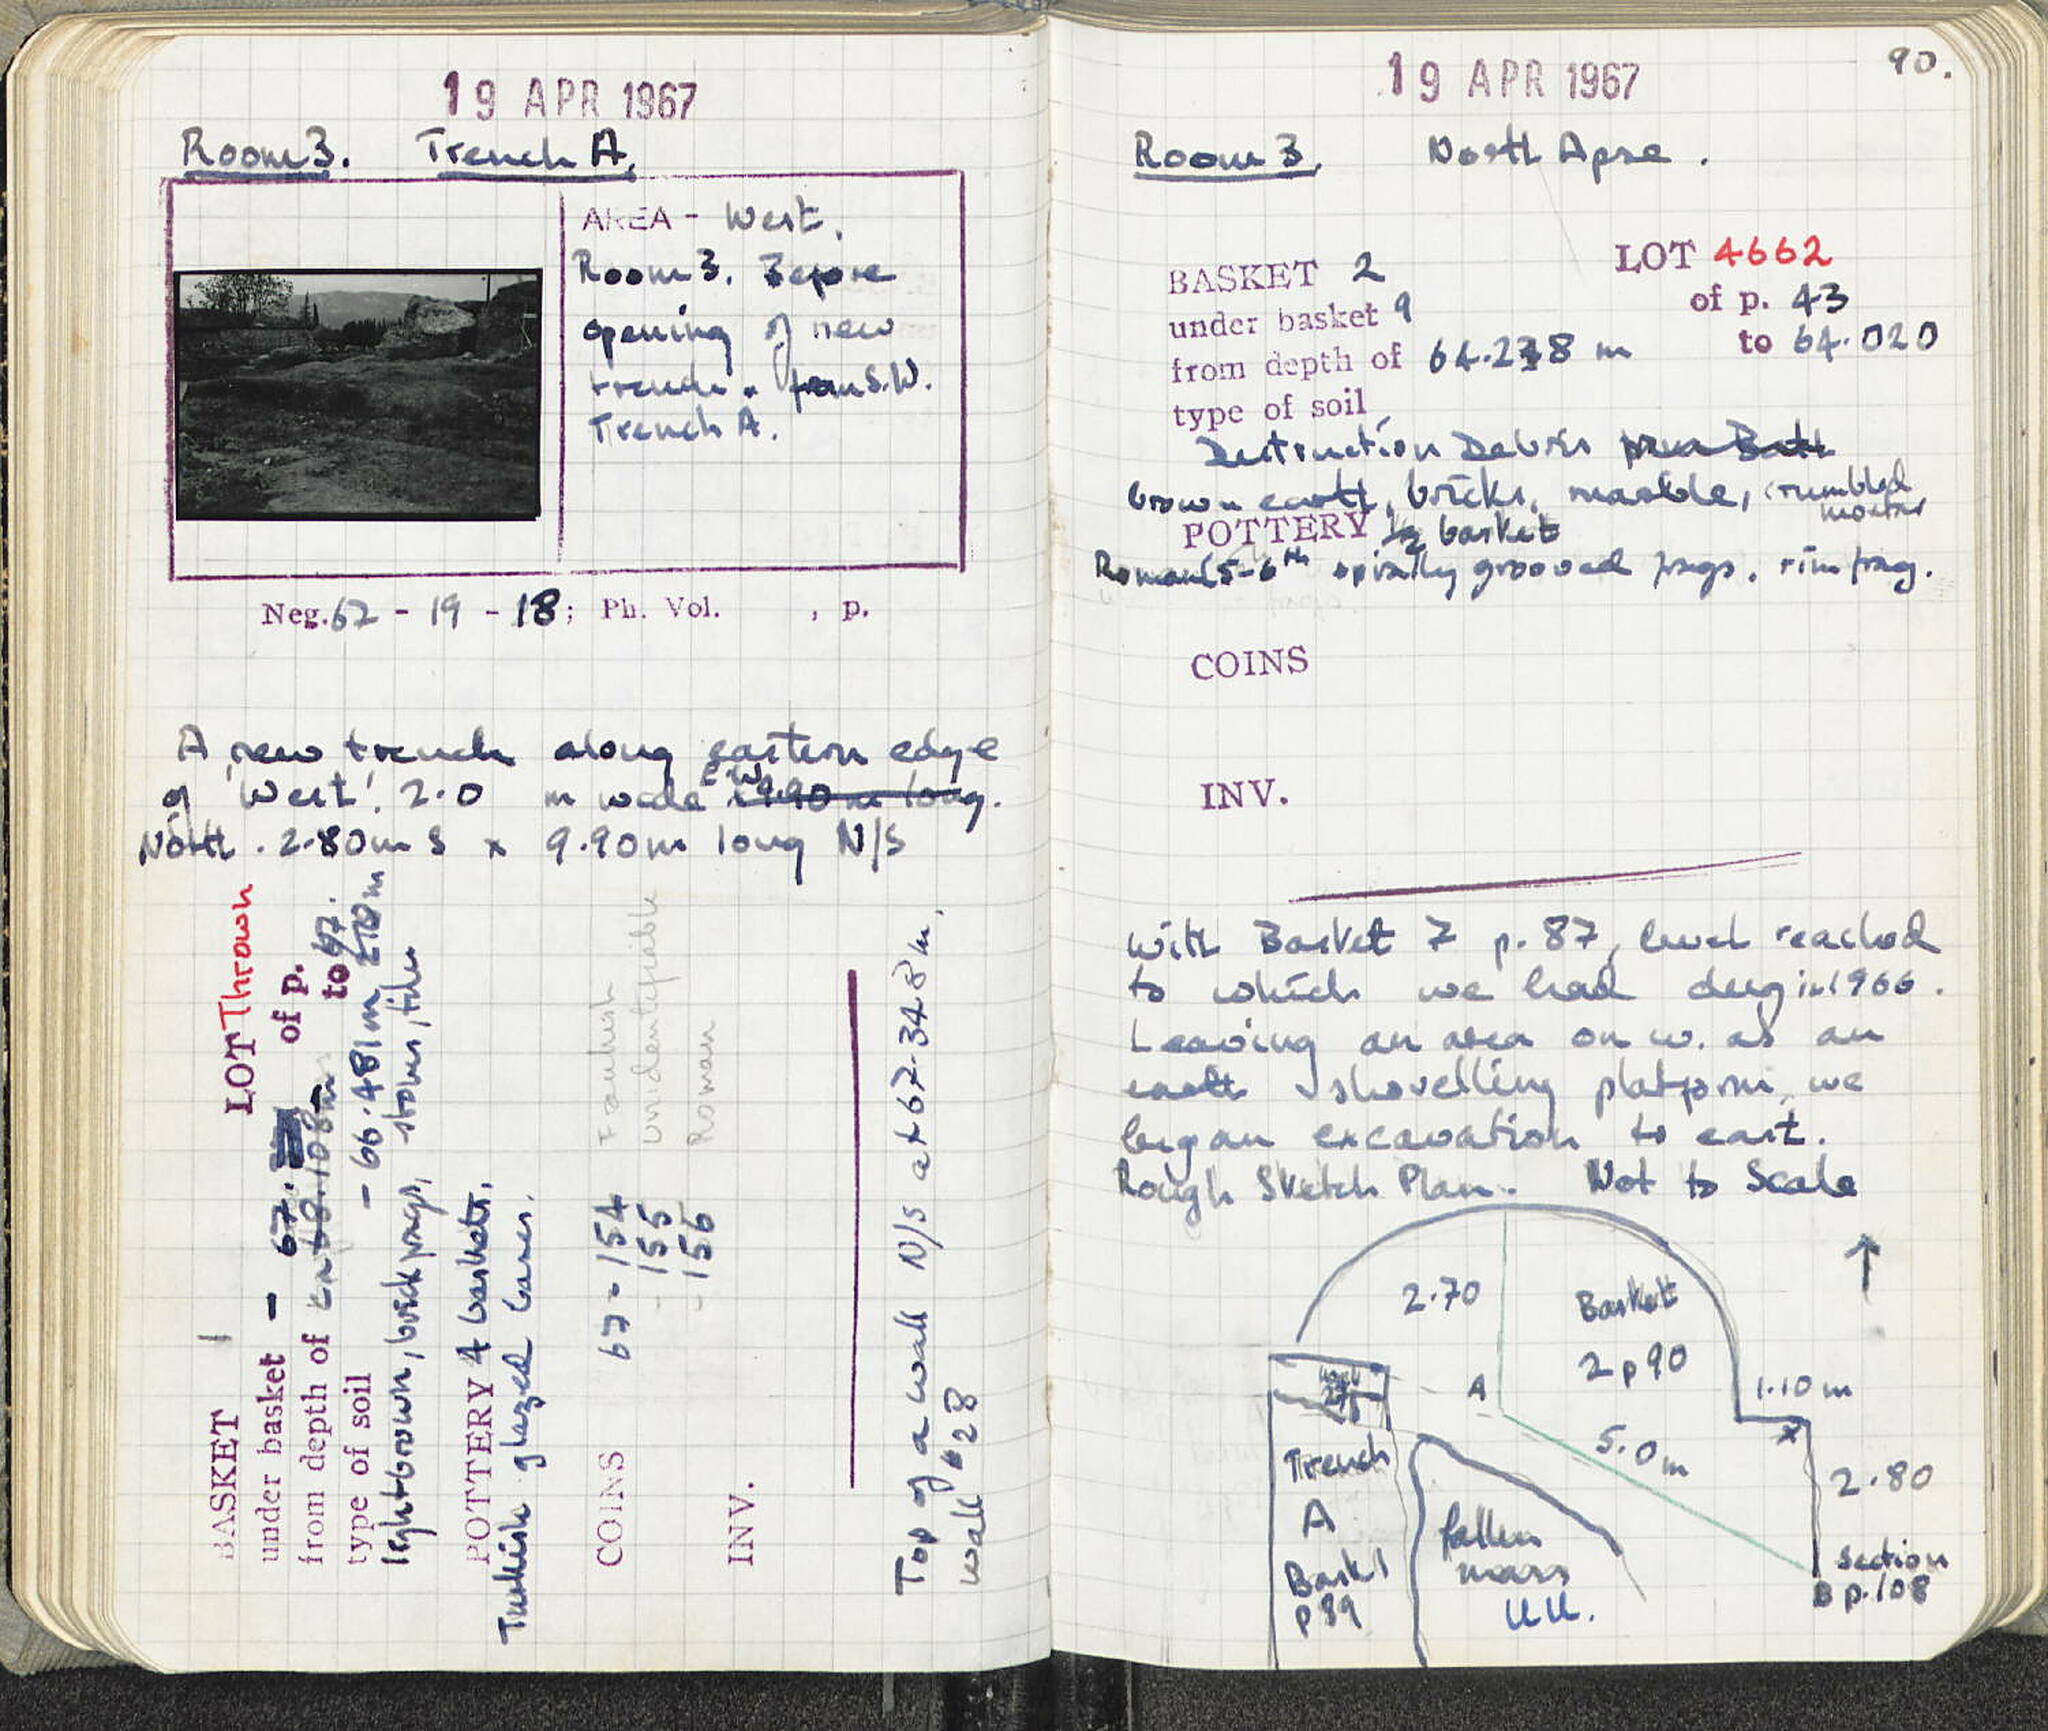 19 APR 1967
Room 3. Trench A.
AREA - West.
Room 3. Before
opening of new
trench. from S.W.
Trench A.
Neg. 67 - 19 - 18; Ph. Vol. , p.
A new trench along eastern edge
of 'West'. 2.0 m wide E/W 9.90 m long.
North. 2.80m S x 9.90m long N/S
BASKET 1 LOT Thrown
under basket - of p.
from depth of 67. to 67.
- 66.481m
type of soil
light brown, brick frags, stones, tiles
POTTERY 4 baskets.
Turkish glazed bases.
COINS 67 - 154 Frankish
- 155 unidentifiable
- 156 Roman
INV.
Top of a wall N/S at 67.348m.
wall 28
19 APR 1967
90.
Room 3. North Apse.
BASKET 2 LOT 4662
under basket 9 of p. 43
from depth of 64.278 m to 64.020
type of soil
Destruction Debris
brown earth, bricks, marble, crumbled mortar
POTTERY 1/2 basket
Roman (5-6th spirally grooved frags. rim frag.
COINS
INV.
With Basket 7 p. 87, level reached
to which we had dug in 1966.
Leaving an area on w. as an
earth shovelling platform, we
began excavation to east.
Rough Sketch Plan. Not to Scale
2.70
Basket
2 p 90
A
1.10 m
x
5.0 m
2.80
Trench
A
Bask 1
p 89
fallen
mass
UU.
Section
B p.108